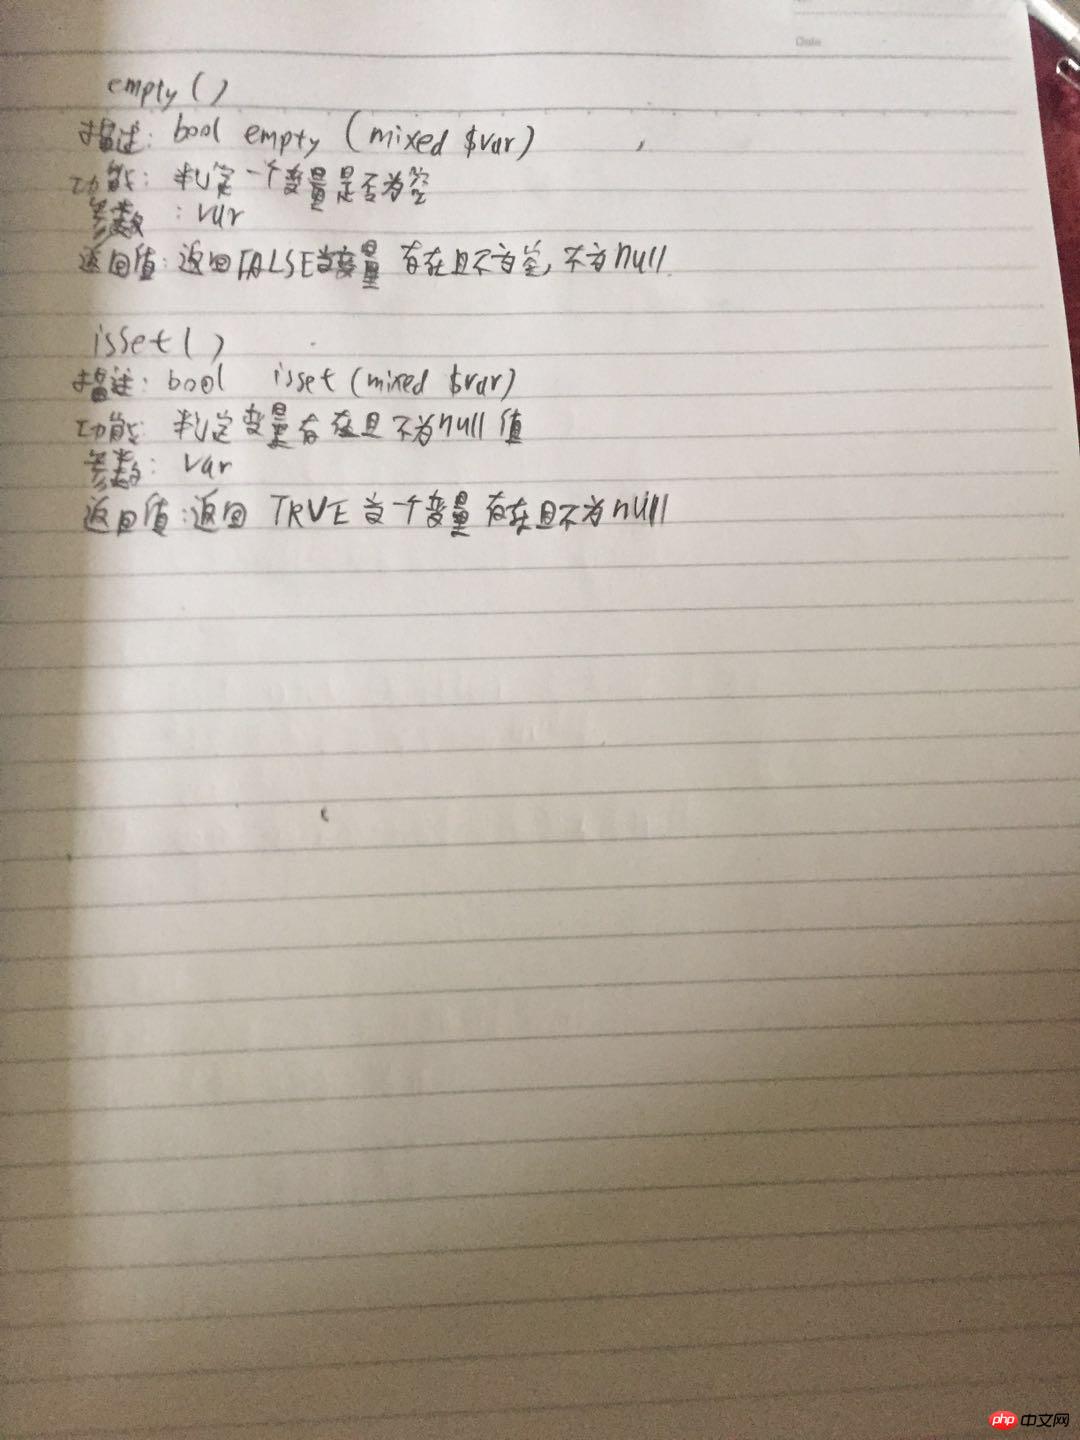 Date
empty()
描述: bool empty (mixed $var)
功能: 判定一个变量是否为空
参数 : var
返回值: 返回FALSE当变量 存在且不为空, 不为null.
isset()
描述: bool isset (mixed $var)
功能: 判定变量存在且不为null值
参数: var
返回值:返回 TRUE 当一个变量存在且不为null
php 中文网